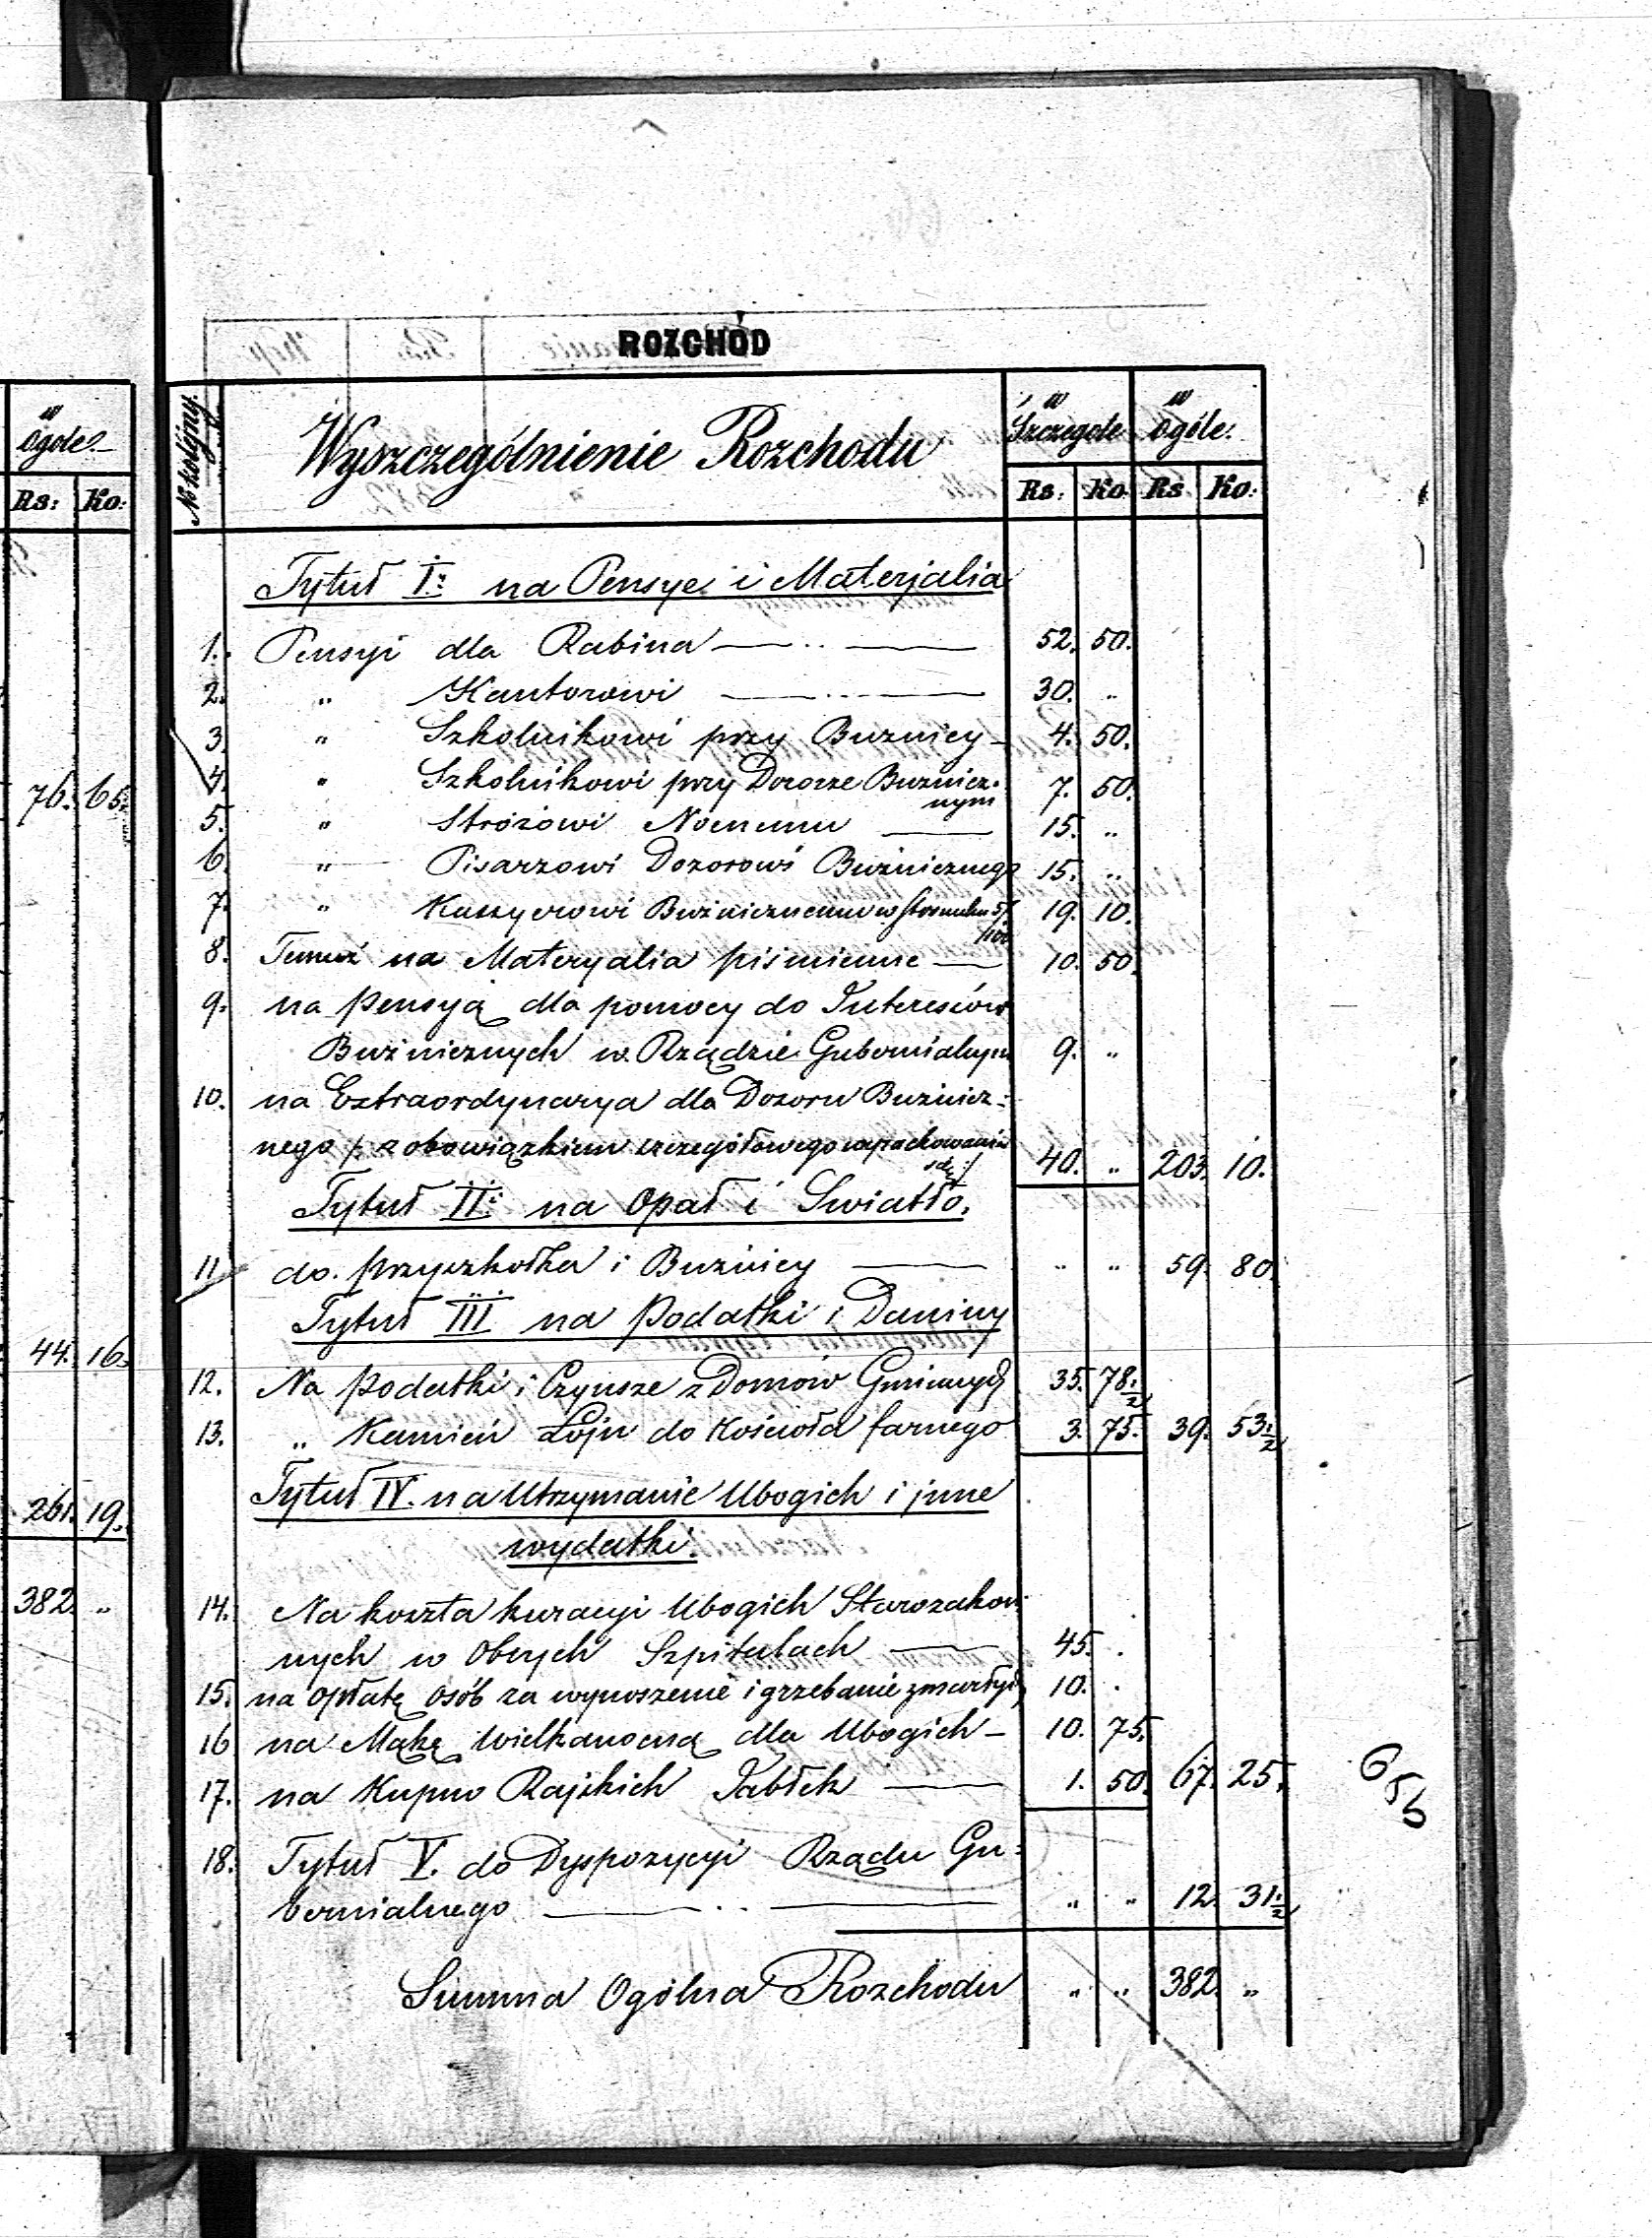 w
Ogóle.
Rs: Ko:
76. 65.
44. 16.
261. 19.
382. „
ROZCHÓD
No kolejny.
Wyszczególnienie Rozchodu
w Szczególe
w ogóle.
Rs: Ko. Rs Ko:
Tytuł I: na Pensye i Materjalia
1. Pensyi dla Rabina — .. — 52. 50.
2. „ Kantorowi — ... — 30. „
3. „ Szkolnikowi przy Buznicy — 4. 50.
4. „ Szkolnikowi przy Dozorze Buznicz-
nym 7. 50.
5. „ Stróżowi Nocnemu — 15. „
6. „ Pisarzowi Dozorowi Bużnicznego 15. „
7. „ Kassyerowi Bużnicznemu w stosunku 5/100 19. 10.
8. Temuż na Materyalia piśmienne — 10. 50.
9. na Pensyą dla pomocy do Interesów
Bużnicznych w Rządzie Gubernialnym 9. „
10. na Extraordynarya dla Dozoru Bużnicz-
nego /: z obowiązkiem szczegółowego wyrachowania
się :/ 40. „ 203. 10.
Tytuł II: na Opał i Swiatło.
11 do przyszkołka i Buznicy — „ „ 59. 80.
Tytuł III na Podatki i Daniny
12. Na podatki i Czynsze z Domów Gminnych 35. 78 1/2
13. „ Kamień Łoju do Kościoła farnego 3. 75. 39. 53 1/2
Tytuł IV. na Utrzymanie Ubogich i jnne
wydatki.
14. Na koszta kuracyi Ubogich Starozakon-
nych w Obcych Szpitalach — 45. .
15. na opłatę Osób za wynoszenie i grzebanie zmarłych 10. .
16 na Mąkę Wielkanocną dla Ubogich — 10. 75.
17. na Kupno Rajskich Jabłek — 1. 50. 67. 25.
18. Tytuł V. do Dyspozycyi Rządu Gu-
bernialnego — .. — „ „ 12. 31 1/2
Summa Ogólna Rozchodu „ „ 382. „